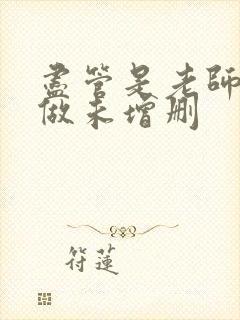 盡管是老師
做未增刪
符蓮